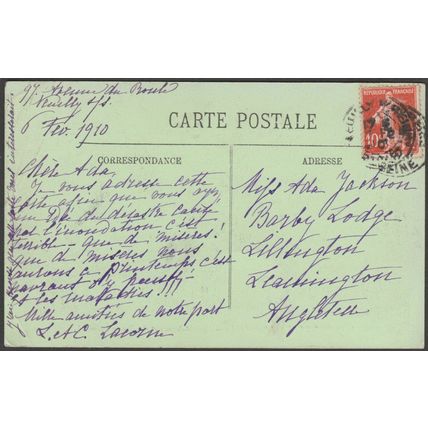 97. Avenue du Roule
Neuilly s/s
6 Fev. 1910
CARTE POSTALE
CORRESPONDANCE
Chère Ada,
Je vous adresse cette
carte afin que vous voyez
un de desastre causé
par l'inondation c'est
terrible - que de misères!
que de misères nous
aurons à Printemps c'est
navrant d'y penser
et les maladies!!!
Mille amitiés de notre part
L. et C.
ADRESSE
Miss Ada Jackson
Barby Lodge
Lillington
Leamington
Angleterre
REPUBLIQUE FRANÇAISE
10
SEINE